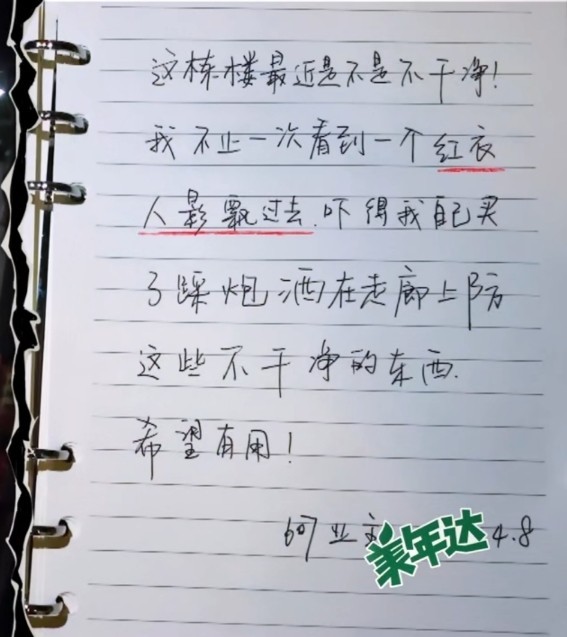 这栋楼最近是不是不干净！
我不止一次看到一个红衣
人影飘过去.吓得我自己买
了踩炮洒在走廊上防
这些不干净的东西.
希望有用！
607业主 4.8
美年达